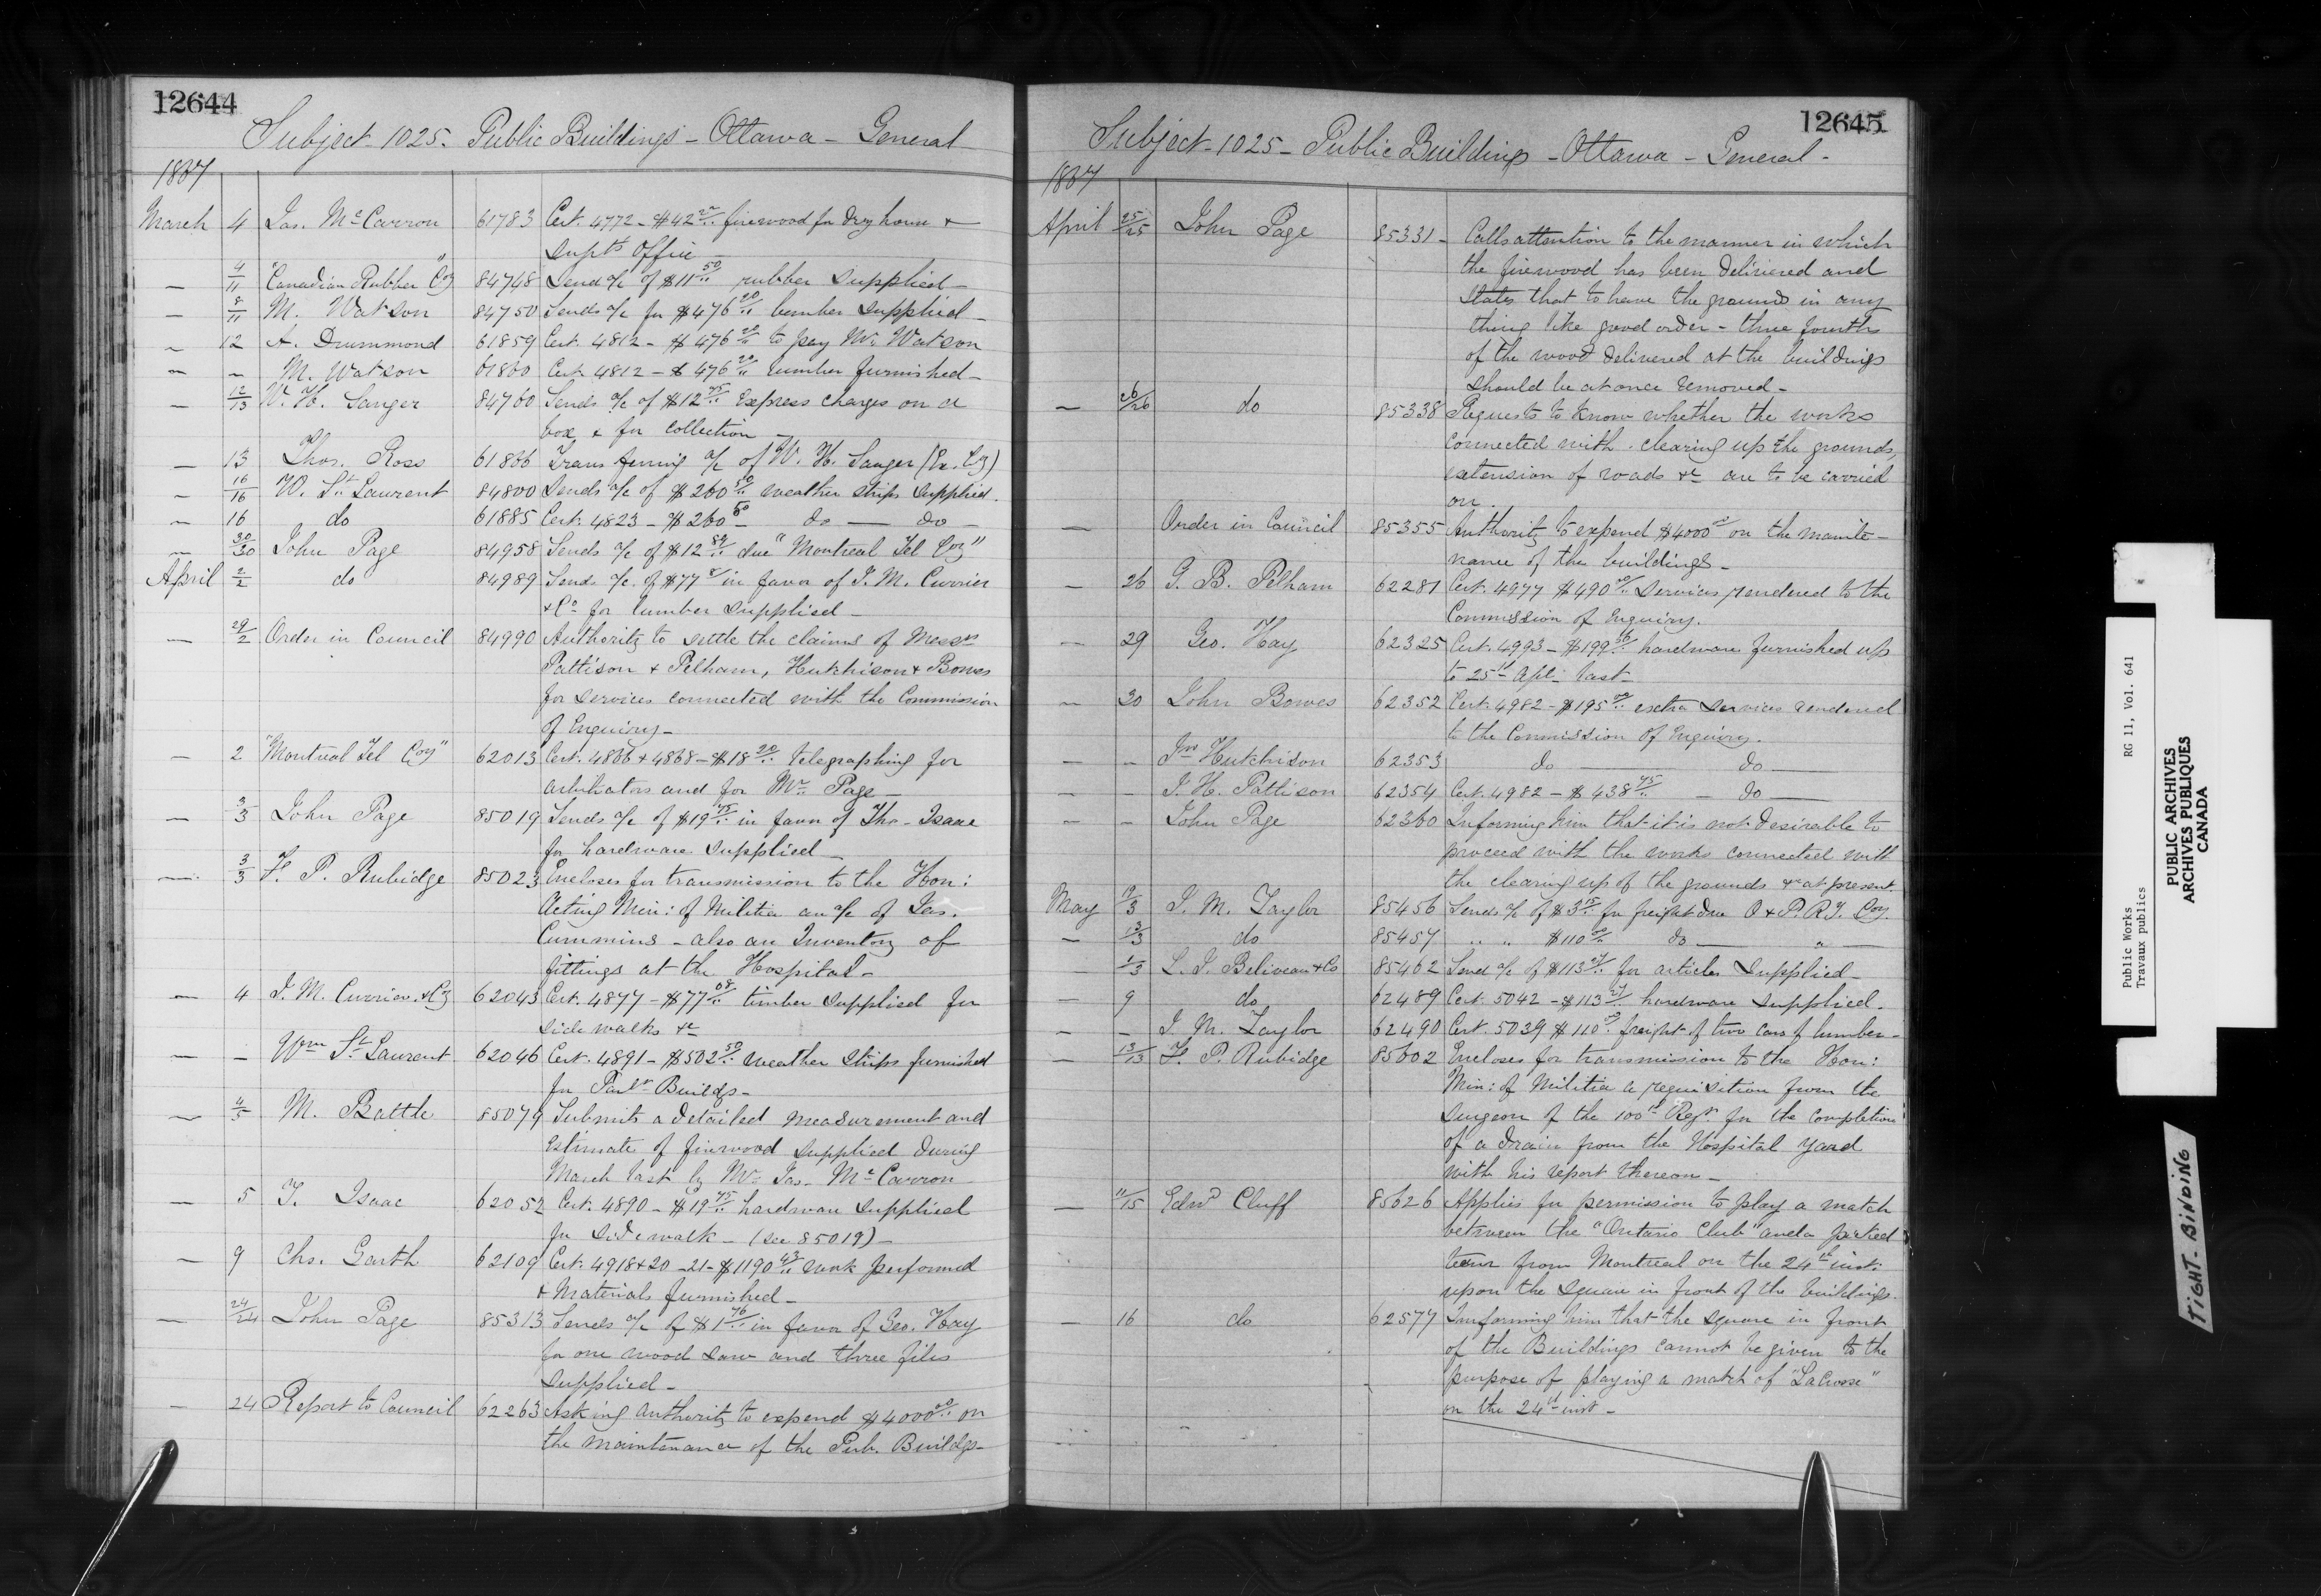 12644
Subject 1025. Public Buildings - Ottawa - General
1867
March 4 Jas. McCarron 61783 Cert. 4772 - $42.20 firewood for Dry house &
Supts Office -
— 4/11 "Canadian Rubber Coy" 84748 Send a/c of $11.50 rubber supplied -
— 8/11 M. Watson 84750 Sends a/c for $476.20 lumber supplied -
— 12 A. Drummond 61859 Cert. 4812 - $476.20 to pay Mr Watson
— — M. Watson 61860 Cert. 4812 - $476.20 lumber furnished -
— 12/13 W. H. Sanger 84760 Sends a/c of $12.75 Express charges on a
box & for collection -
— 13 Thos. Ross 61866 Transferring a/c of W. H. Sanger (Ex. Coy)
— 16/16 W. St Laurent 84800 Sends a/c of $260.50 weather strips supplied.
— 16 do 61885 Cert. 4823 - $260.50 - do — do -
— 30/30 John Page 84958 Sends a/c of $12.89 due "Montreal Tel Coy"
April 2/2 do 84989 Sends a/c of $77 in favor of J. M. Currier
& Co for lumber supplied -
— 29/2 Order in Council 84990 Authority to settle the claims of Messrs
Pattison & Pelham, Hutchison & Bowes
for services connected with the Commission
of Enquiry -
— 2 "Montreal Tel Coy" 62013 Cert. 4866 & 4868 - $18.20 telegraphing for
arbitrators and for Mr. Page -
— 3/3 John Page 85019 Sends a/c of $19.75 in favor of Tho. Isaac
for hardware supplied -
— 3/3 F. P. Rubidge 85023 Encloses for transmission to the Hon:
Acting Min: of Militia an a/c of Jas.
Cummins - also an Inventory of
fittings at the Hospital -
— 4 J. M. Currier & Co 62043 Cert. 4877 - $77.08 timber supplied for
side walks &c
— — Wm St Laurent 62046 Cert. 4891 - $502.50 weather strips furnished
for Parlt Buildgs -
— 4/5 M. Battle 85079 Submits a detailed measurement and
estimate of firewood supplied during
March last by Mr. Jas. McCarron
— 5 T. Isaac 62052 Cert. 4890 - $19.75 hardware supplied
for sidewalk - (see 85019) -
— 9 Chs. Garth 62109 Cert. 4918 & 20 - 21 - $1190.43 work performed
& Materials furnished -
— 24/24 John Page 85313 Sends a/c of $1.76 in favor of Geo. Hay
for one wood saw and three files
supplied -
— 24 Report to Council 62263 Asking authority to expend $4000.00 on
the maintenance of the Pub. Buildgs -
12645
Subject - 1025 - Public Buildings - Ottawa - General -
1867
April 25/25 John Page 85331 - Calls attention to the manner in which
the firewood has been delivered and
states that to have the grounds in any
thing like good order - three fourths
of the wood delivered at the buildings
should be at once removed -
— 26/26 do 85338 Requests to know whether the works
connected with clearing up the grounds,
extension of roads &c are to be carried
on.
— Order in Council 85355 Authority to expend $4000 on the mainte-
nance of the buildings -
— 26 G. B. Pelham 62281 Cert. 4977 $490.00 services rendered to the
Commission of Enquiry.
— 29 Geo. Hay 62325 Cert. 4993 - $199.56 hardware furnished up
to 25th Apl - last -
— 30 John Bowes 62352 Cert. 4982 - $195.00 extra services rendered
to the Commission of Enquiry.
— — Jno Hutchison 62353 do — do —
— — J. H. Pattison 62354 Cert. 4982 - $438.75 - do —
— — John Page 62360 Informing him that it is not desirable to
proceed with the works connected with
the clearing up of the grounds &c at present.
May 19/3 J. M. Taylor 85456 Sends a/c of $3.15 for freight due O & P. Ry. Coy.
— 13/3 do 85457 " " $110.00 do — " —
— 1/3 L. J. Beliveau & Co 85462 Send a/c of $113.27 for articles supplied -
— 9 do 62489 Cert. 5042 - $113.27 hardware supplied.
— — J. M. Taylor 62490 Cert. 5039 $110.00 freight of two cars of lumber -
— 13/13 F. P. Rubidge 85602 Encloses for transmission to the Hon:
Min: of Militia a requisition from the
surgeon of the 100th Regt for the completion
of a drain from the Hospital yard
with his report thereon -
— 11/15 Edwd Cluff 85626 Applies for permission to play a match
between the "Ontario Club" and a picked
team from Montreal on the 24th inst:
upon the square in front of the buildings.
— 16 do 62577 Informing him that the square in front
of the Buildings cannot be given to the
purpose of playing a match of "LaCrosse"
on the 24th inst -
Public Works RG 11, Vol. 641
Travaux publics
PUBLIC ARCHIVES
ARCHIVES PUBLIQUES
CANADA
TIGHT BINDING